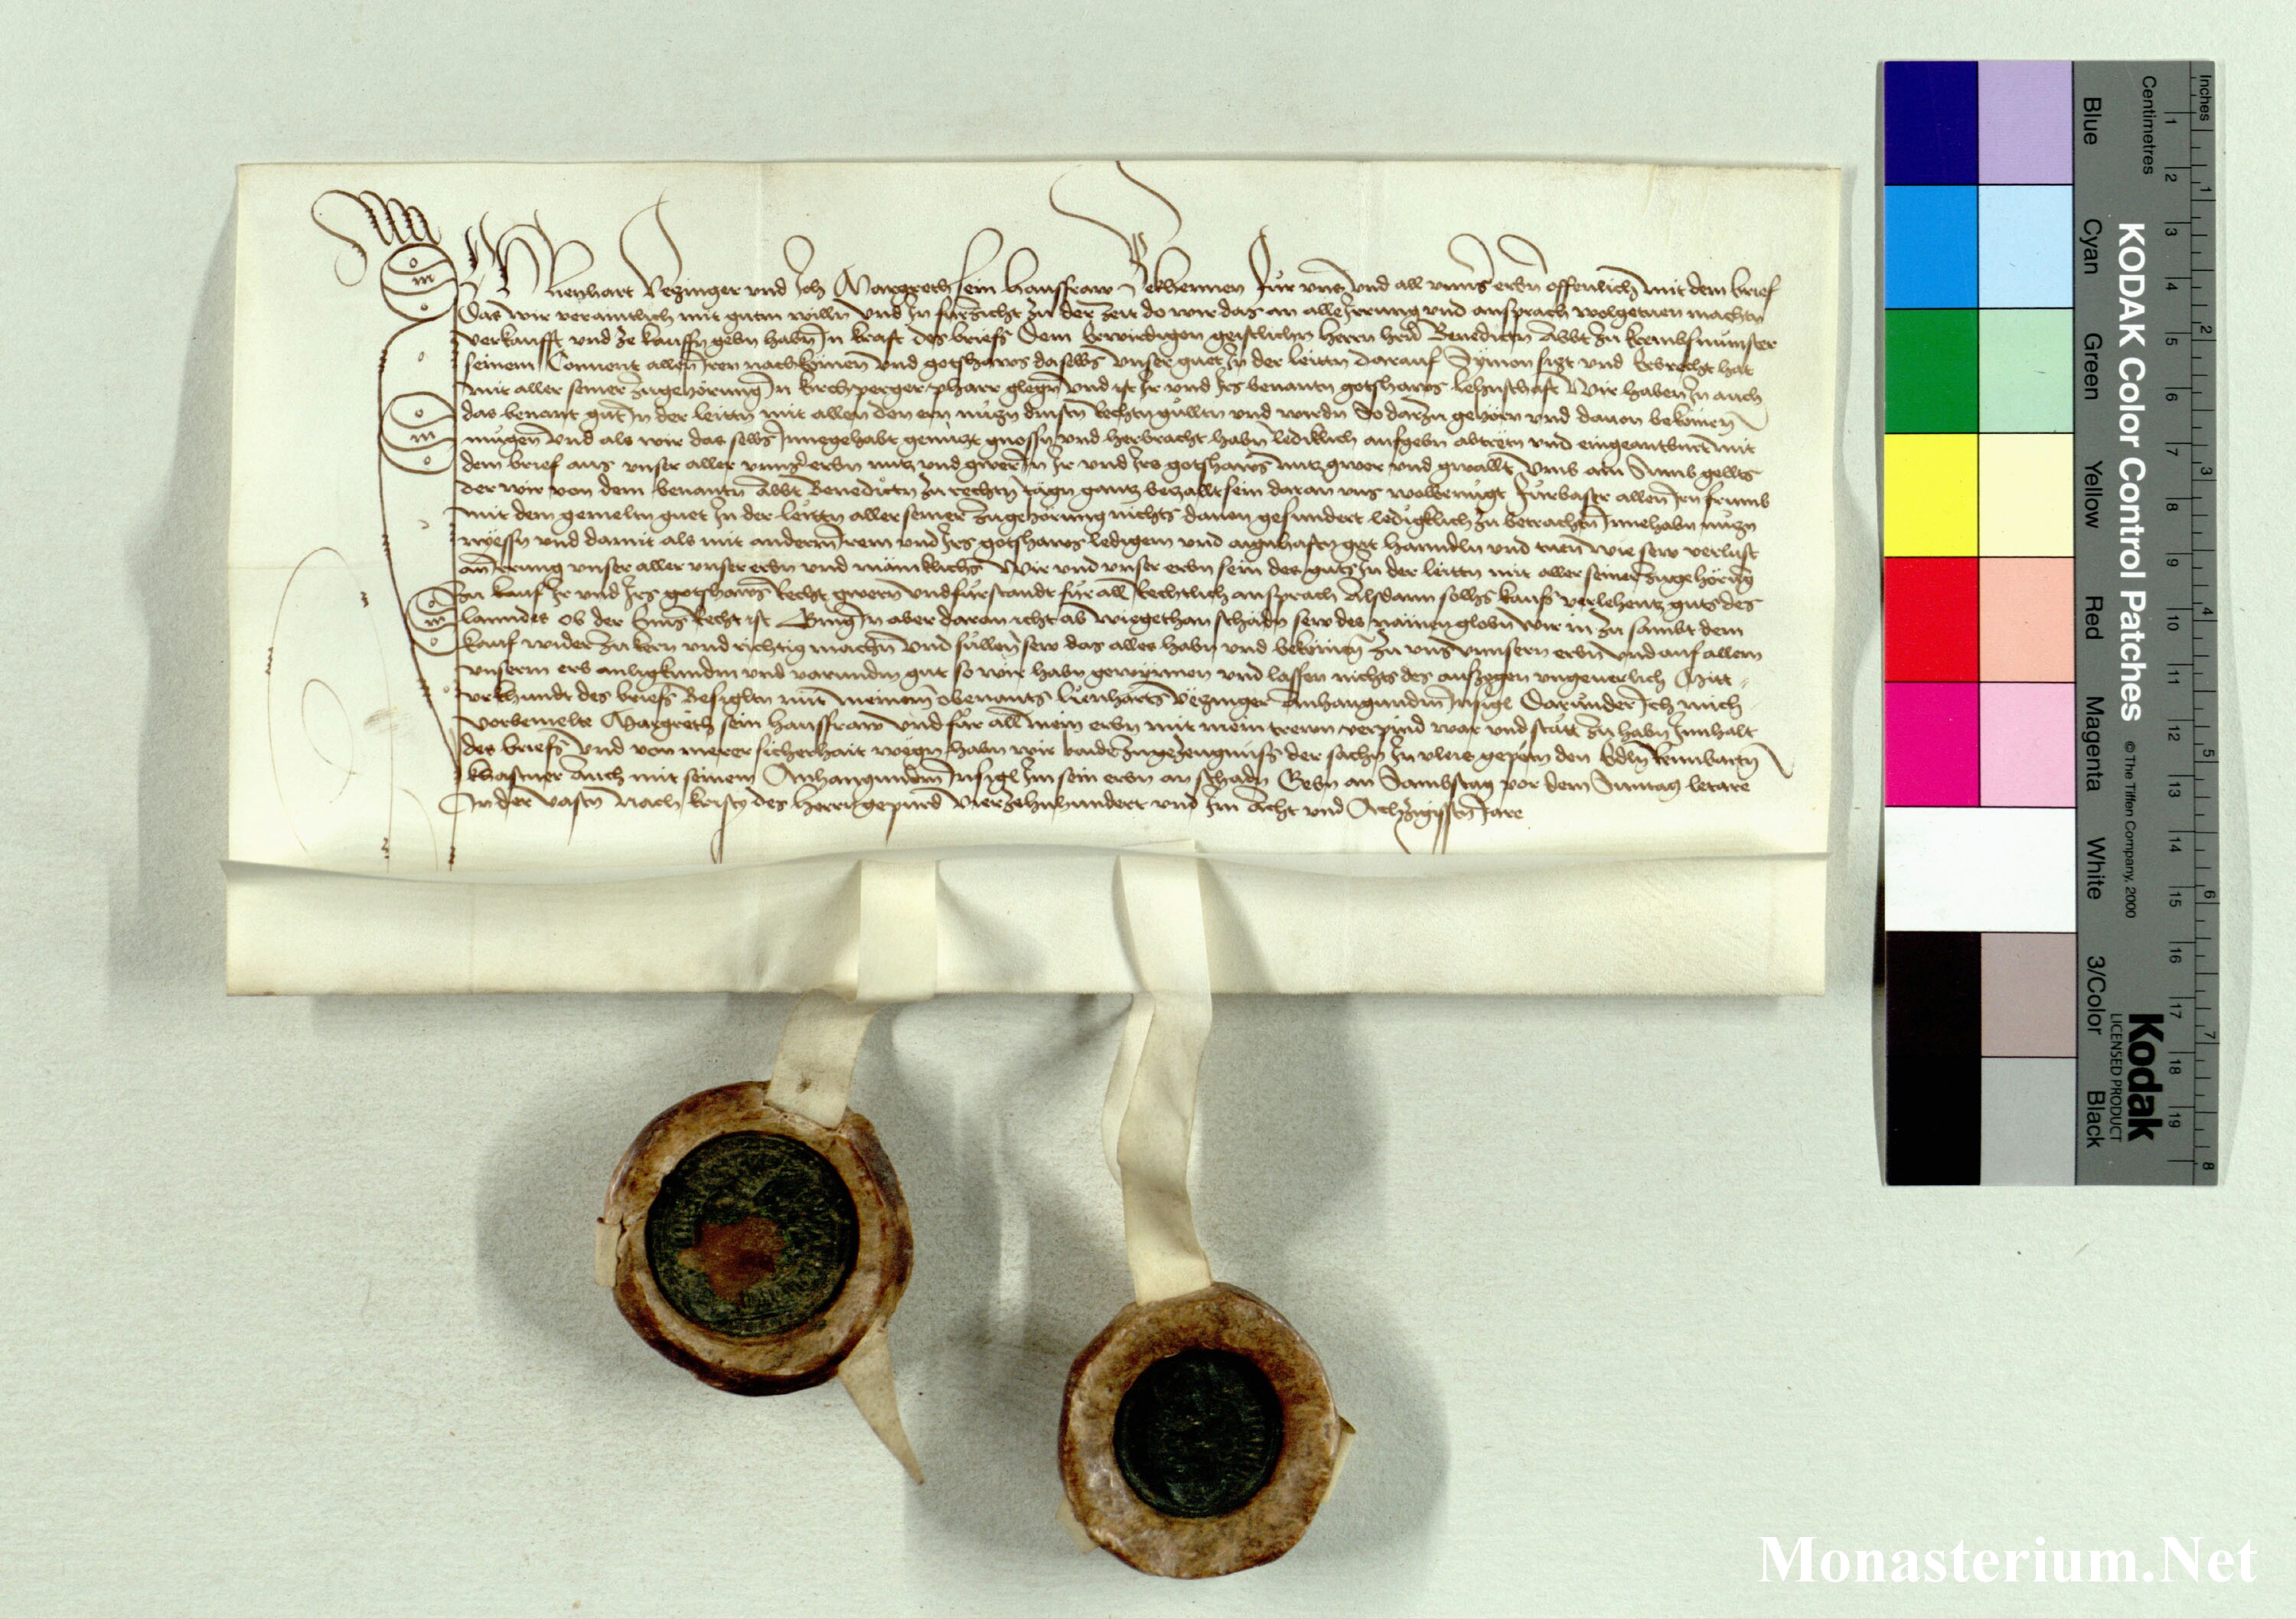 Ich Lienhart Vezinger vnd Ich Margreth sein hausfraw Bekhennen für vns vnd all vnnser erbn offenlich mit dem brief
Das wir veraintlich mit gutm willn vnd In fürsicht zu der zeit do wir das an alle Irrung vnd ansprach wolgetuen machtn
verkaufft vnd ze kauffn gebn habn In kraft des briefs Dem Erwirdigen geistlichn herrn hern Benedictn Abbt zu krembsmünster
seinem Conuent allen Iren nachkömen vnd gotshaws daselbs vnser guet In der leittn darauf Symon sizt vnd Erbrecht hat
mit aller seiner zugehörung In kirchperger pharr glegn vnd ist Ir vnd Irs benantn gotshaws lehnschaft Wir haben In auch
das benant gut In der leittn mit allen den ern nuzn dinstn Rechtn gülltn vnd wirdn So darzu gehörn vnd dauon bekömen
mugen vnd als wir das selbs Innegehabt genüzt gnossn vnd herbracht habn lediklich aufgebn abtretn vnd eingeantburt mit
dem brief aus vnser aller vnnser erbn nutz vnd gwer In Ir vnd Irs gotshaws nutz gwer vnd gwallt Vmb ain Sumb gellts
der wir von dem benantn Abbt Benedictn zu rechtn tägn gantz bezallt sein daran vns wolbenügt fürbaser allen Irn frumb
mit dem gemeltn guet In der leittn aller seiner zugehörung nichts dauon gesundert ledigklich zu betrachtn Innehabn nüzn
nyessn vnd damit als mit anderm Irem vnd Irs gotshaws ledigem vnd aignhaftn gut hanndln vnd tuen wie sew verlust
an Irrung vnser aller vnser erbn vnd mänklichs Wir vnd vnser erbn sein des guts In der leittn mit aller seiner zugehörung
zu kauf Ir vnd Irs gotshaws Recht gwern vnd fürstandt für all Rechtlich ansprach Alsdann solhs kaufs verlehentz guts des
lanndes ob der Enns Recht ist Gieng In aber daran icht ab wiegethan schadn sew des näinen globn wir in zu sambt dem
kauf wider zu kern vnd richtig machn vnd süllen sew das alles habn vnd bekömen zu vns vnnsern erbn vnd auf allem
vnserm erb anligkundm vnd varundm gut so wir habn gewynnen vnd lassen nichts des aufzogen vngeuerlich Mitt
vrkhundt des briefs Besigltn mit meinem obenants Lienharts Vezinger Anhangundm Insigl Darunder Ich mich
vorbemelte Margreth sein hausfraw vnd für all mein erbn mit mein trewn verpind war vnd stätt zu habn Innhalt
des briefs vnd von merer sicherhait wegn habn wir baide zugezeugnüss der sachn zu vleis gepetn den Edln Reinbartn
khastner Auch mit seinem Anhangundm Insigl Im sein erbn an schadn Gebn an Sambstag vor dem Suntag letare
In der vastn nach kristy des herrn gepurd vierzehnhundert vnd Im Acht vnd Achzigistn Jare
Inches
Centimetres
KODAK Color Control Patches
© The Tiffen Company, 2000
Kodak
LICENSED PRODUCT
Blue
Cyan
Green
Yellow
Red
Magenta
White
3/Color
Black
Monasterium.Net